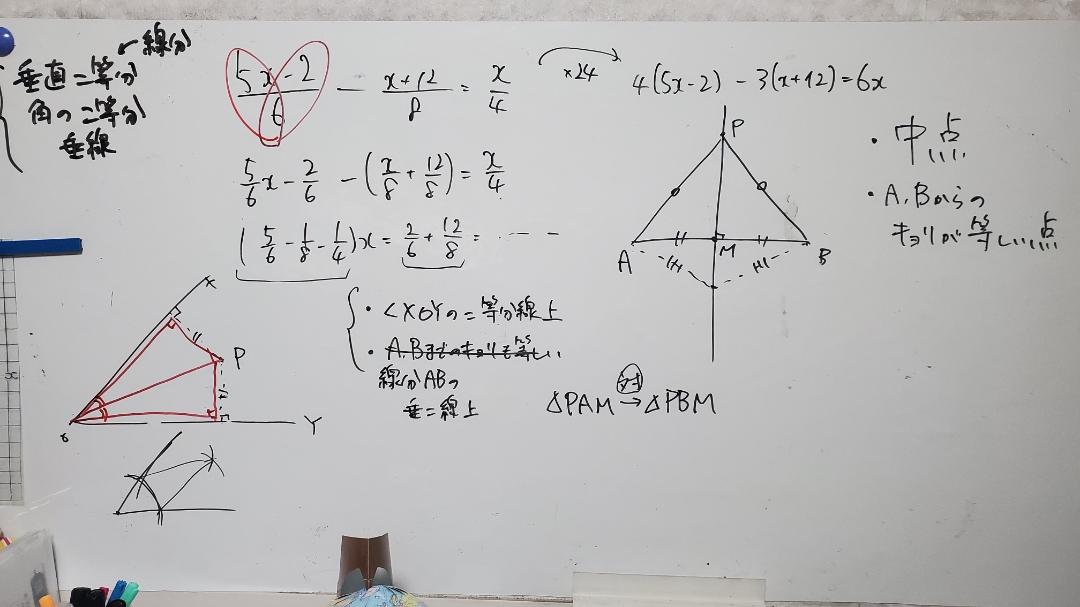 線分
垂直二等分
角の二等分
垂線
(5x-2)/6 - (x+12)/8 = x/4
×24
4(5x-2) - 3(x+12) = 6x
5/6 x - 2/6 - (x/8 + 12/8) = x/4
(5/6 - 1/8 - 1/4)x = 2/6 + 12/8 = ‥‥
P
A
M
B
・中点
・A,Bからの
キョリが等しい点
X
P
O
Y
・∠XOYの二等分線上
・A,Bまでのキョリも等しい
線分ABの
垂二線上
△PAM → △PBM
対